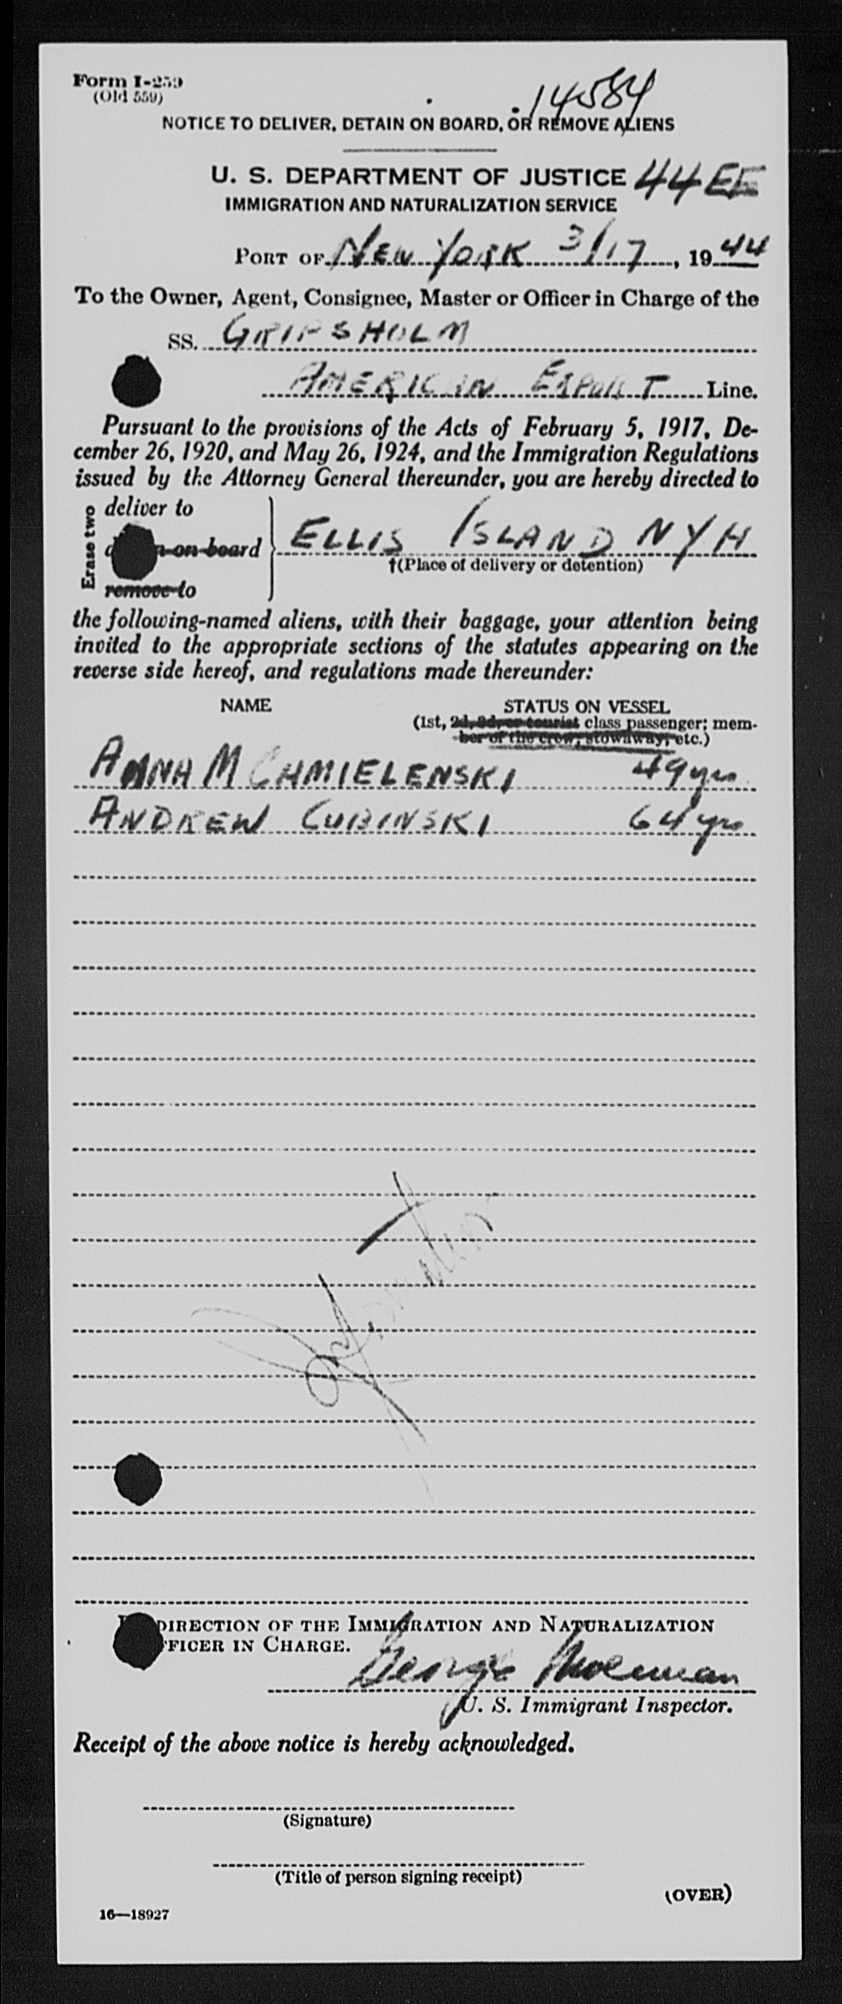 Form I-259
(Old 559)
14584
NOTICE TO DELIVER, DETAIN ON BOARD, OR REMOVE ALIENS
U. S. DEPARTMENT OF JUSTICE 44 EE
IMMIGRATION AND NATURALIZATION SERVICE
PORT OF NEW YORK 3/17, 1944
To the Owner, Agent, Consignee, Master or Officer in Charge of the
SS. GRIPSHOLM
AMERICAN EXPORT Line.
Pursuant to the provisions of the Acts of February 5, 1917, De-
cember 26, 1920, and May 26, 1924, and the Immigration Regulations
issued by the Attorney General thereunder, you are hereby directed to
Erase two
deliver to
n on board
remove to
ELLIS ISLAND NYH
†(Place of delivery or detention)
the following-named aliens, with their baggage, your attention being
invited to the appropriate sections of the statutes appearing on the
reverse side hereof, and regulations made thereunder:
NAME STATUS ON VESSEL
(1st, 2d, 3d, or tourist class passenger; mem-
ber of the crew, stowaway, etc.)
ANNA M CHMIELENSKI 49 yrs
ANDREW CUBINSKI 64 yrs
DIRECTION OF THE IMMIGRATION AND NATURALIZATION
FFICER IN CHARGE.
George
U. S. Immigrant Inspector.
Receipt of the above notice is hereby acknowledged.
(Signature)
(Title of person signing receipt)
(OVER)
16—18927